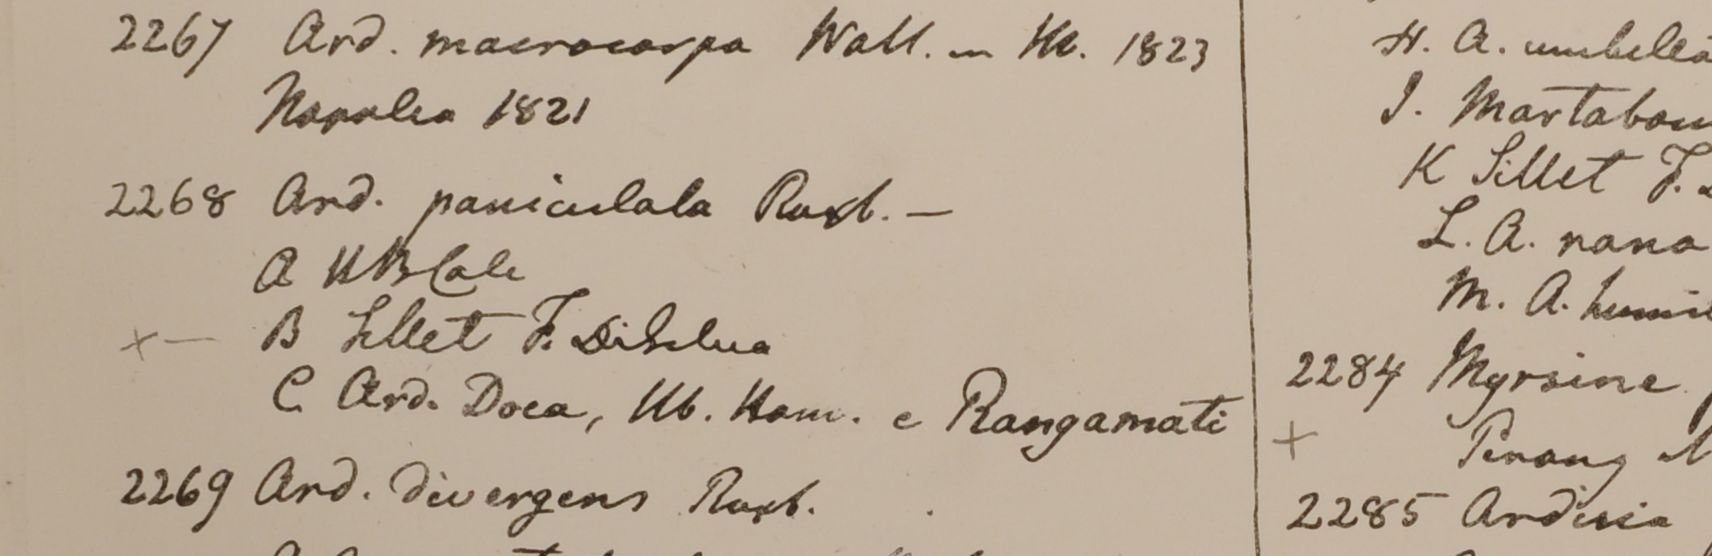 2267 Ard. macrocarpa Wall. in Hb. 1823
Napalia 1821
2268 Ard. paniculata Roxb. —
A HB Calc
×— B Sillet F. DeSilva
C Ard. Doca, Hb. Ham. e Rangamati
2269 Ard. divergens Roxb.
H. A. umbella
I. Martaban
K Sillet F.
L. A. nana
M. A. humil
2284 Myrsine
+ Penang
2285 Ardisia